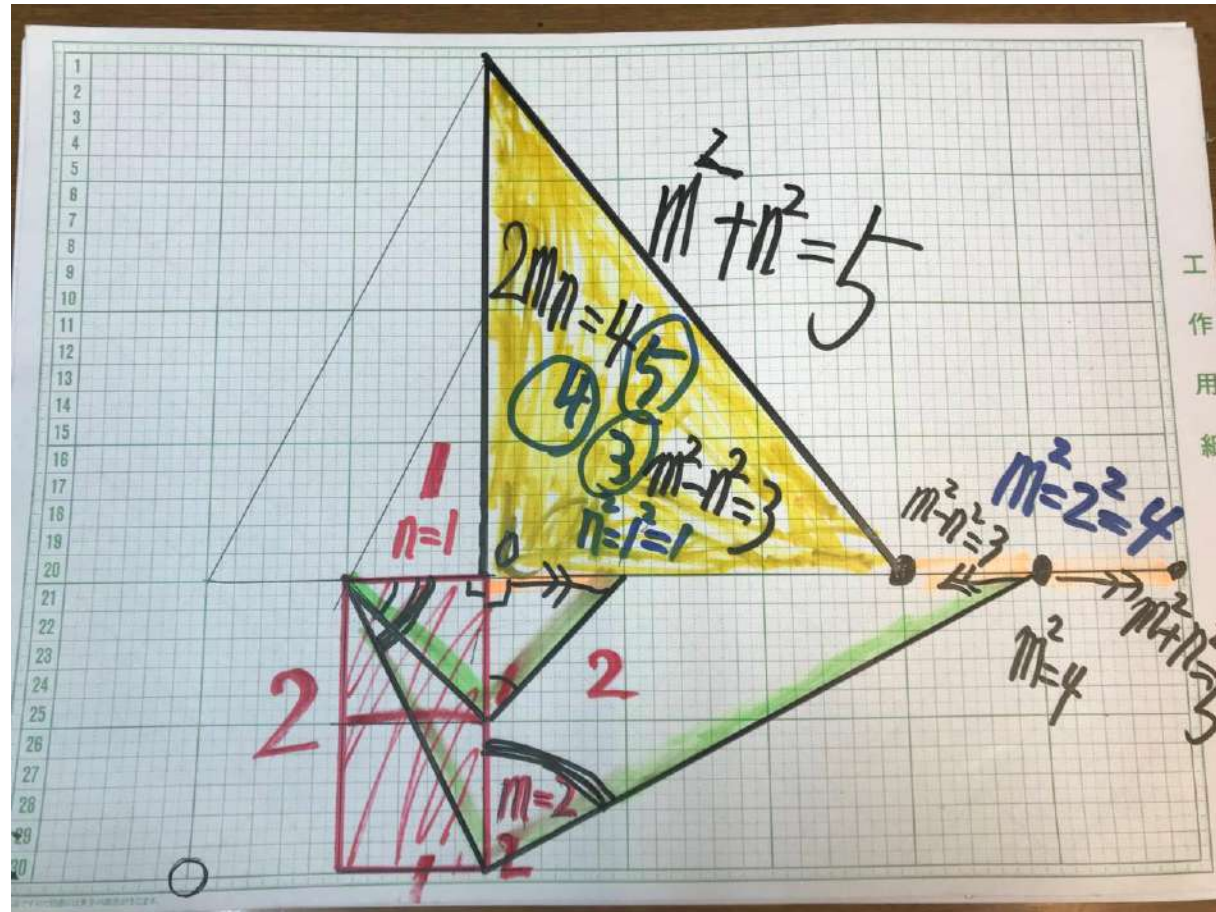 1
2
3
4
5
6
7
8
9
10
11
12
13
14
15
16
17
18
19
20
21
22
23
24
25
26
27
28
29
30
m²+n²=5
2mn=4
4
5
3
m²-n²=3
n²=1²=1
0
1
n=1
2
2
m=2
2
1
m²-n²=3
m²=2²=4
m²=4
m²+n²=5
工作用紙